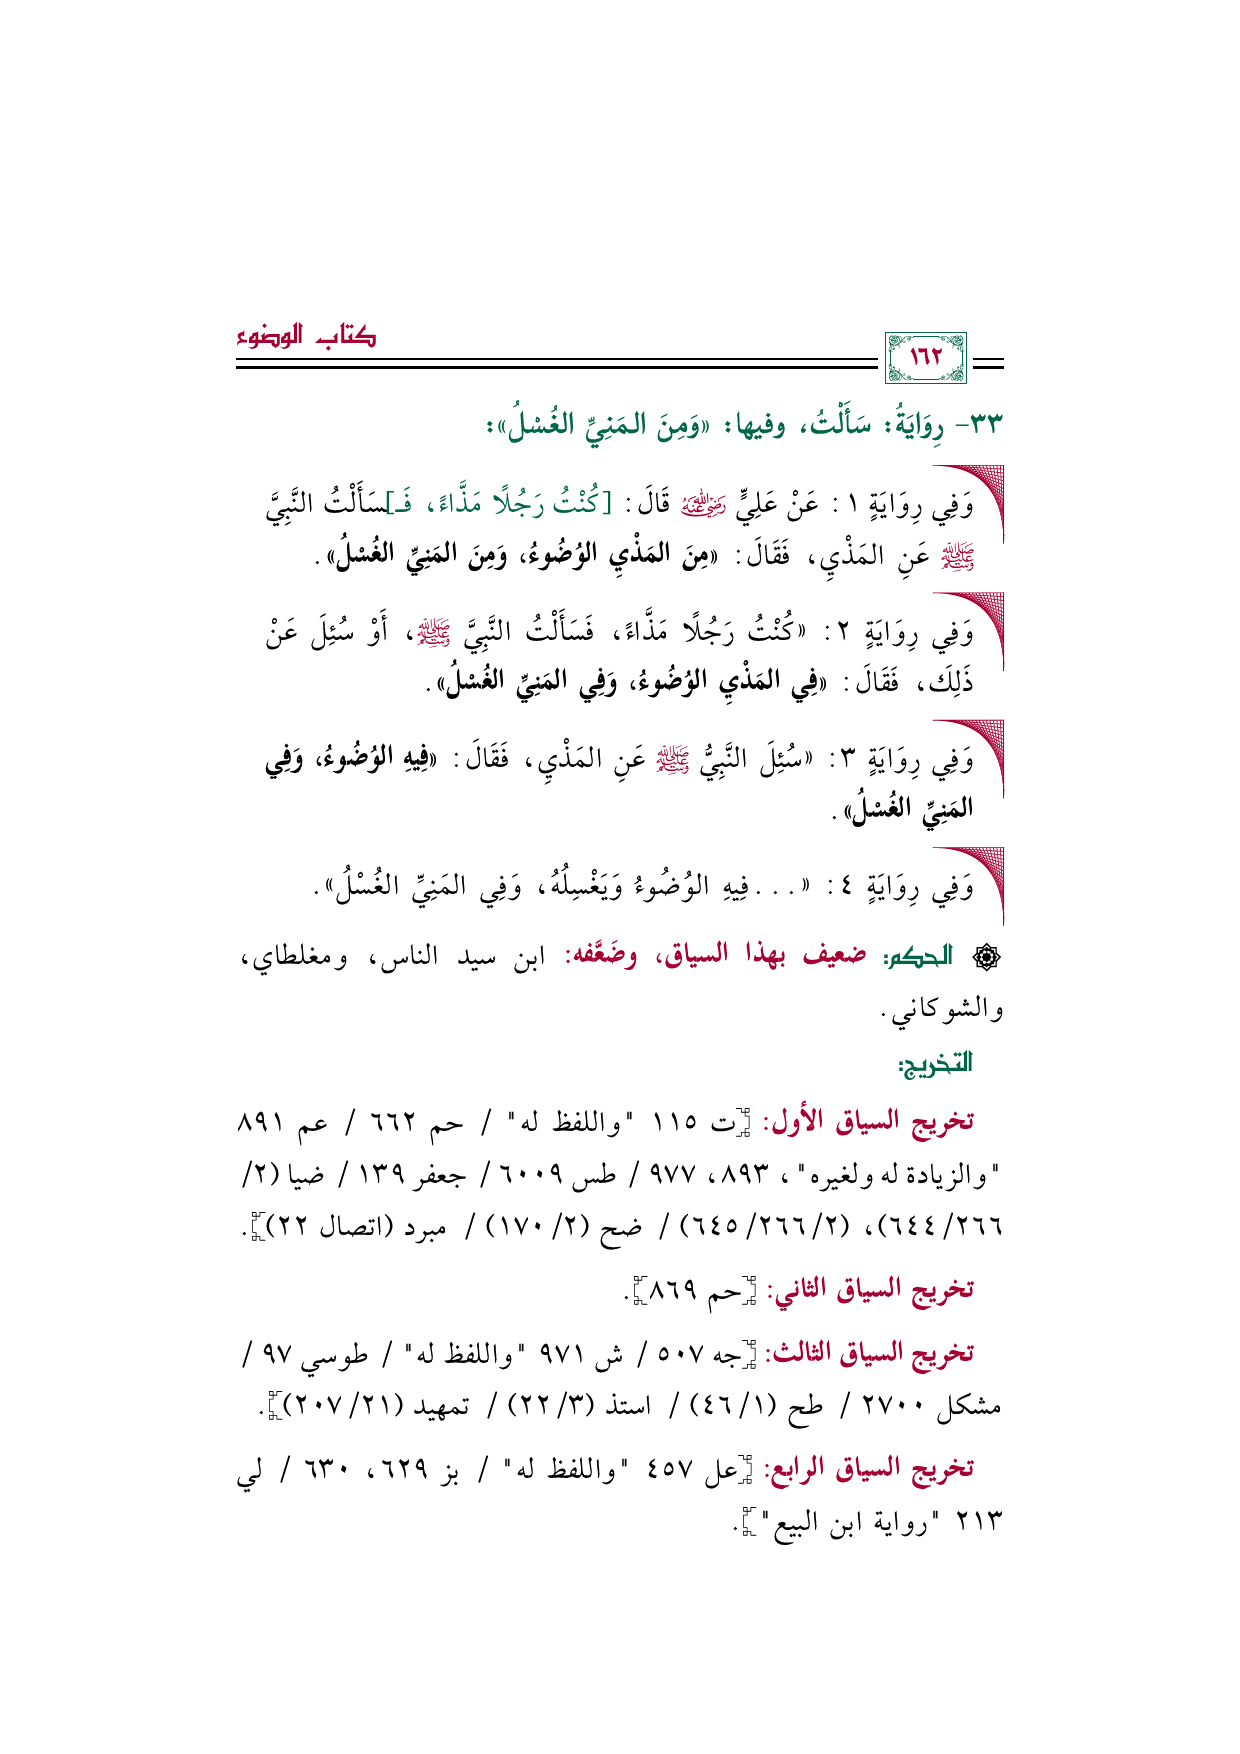 كتاب الوضوء
١٦٢
٣٣- رِوَايَةُ: سَأَلْتُ، وفيها: «وَمِنَ الـمَنِيِّ الغُسْلُ»:
وَفِي رِوَايَةٍ ١: عَنْ عَلِيٍّ رضي الله عنه قَالَ: [كُنْتُ رَجُلًا مَذَّاءً، فَـ]سَأَلْتُ النَّبِيَّ
ﷺ عَنِ المَذْيِ، فَقَالَ: «مِنَ المَذْيِ الوُضُوءُ، وَمِنَ المَنِيِّ الغُسْلُ».
وَفِي رِوَايَةٍ ٢: «كُنْتُ رَجُلًا مَذَّاءً، فَسَأَلْتُ النَّبِيَّ ﷺ، أَوْ سُئِلَ عَنْ
ذَلِكَ، فَقَالَ: «فِي المَذْيِ الوُضُوءُ، وَفِي المَنِيِّ الغُسْلُ».
وَفِي رِوَايَةٍ ٣: «سُئِلَ النَّبِيُّ ﷺ عَنِ المَذْيِ، فَقَالَ: «فِيهِ الوُضُوءُ، وَفِي
المَنِيِّ الغُسْلُ».
وَفِي رِوَايَةٍ ٤: «... فِيهِ الوُضُوءُ وَيَغْسِلُهُ، وَفِي المَنِيِّ الغُسْلُ».
الحكم: ضعيف بهذا السياق، وضَعَّفه: ابن سيد الناس، ومغلطاي،
والشوكاني.
التخريج:
تخريج السياق الأول: [ت ١١٥ "واللفظ له" / حم ٦٦٢ / عم ٨٩١
"والزيادة له ولغيره"، ٨٩٣، ٩٧٧ / طس ٦٠٠٩ / جعفر ١٣٩ / ضيا (٢/
٢٦٦/ ٦٤٤)، (٢/ ٢٦٦/ ٦٤٥) / ضح (٢/ ١٧٠) / مبرد (اتصال ٢٢)].
تخريج السياق الثاني: [حم ٨٦٩].
تخريج السياق الثالث: [جه ٥٠٧ / ش ٩٧١ "واللفظ له" / طوسي ٩٧ /
مشكل ٢٧٠٠ / طح (١/ ٤٦) / استذ (٣/ ٢٢) / تمهيد (٢١/ ٢٠٧)].
تخريج السياق الرابع: [عل ٤٥٧ "واللفظ له" / بز ٦٢٩، ٦٣٠ / لي
٢١٣ "رواية ابن البيع"].